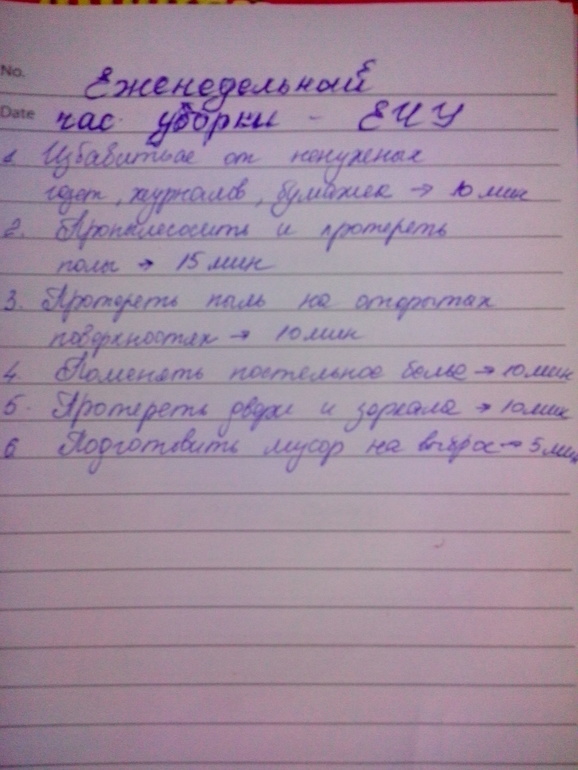 No.
Еженедельный
Date
час уборки - ЕЧУ
1 Избавиться от ненужных
газет, журналов, бумажек → 10 мин
2. Пропылесосить и протереть
полы → 15 мин
3. Протереть пыль на открытых
поверхностях → 10 мин
4. Поменять постельное белье → 10 мин
5. Протереть двери и зеркала → 10 мин
6 Подготовить мусор на выброс → 5 мин